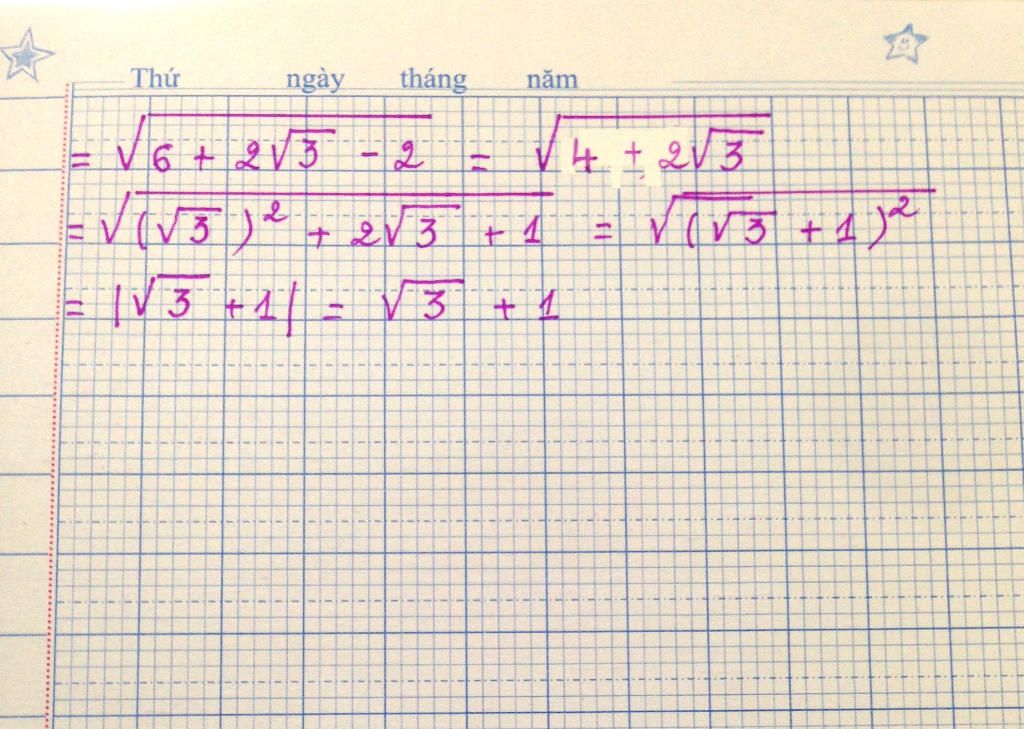 Thứ ngày tháng năm
= √(6 + 2√3 - 2) = √(4 + 2√3)
= √((√3)² + 2√3 + 1) = √((√3 + 1)²)
= |√3 + 1| = √3 + 1